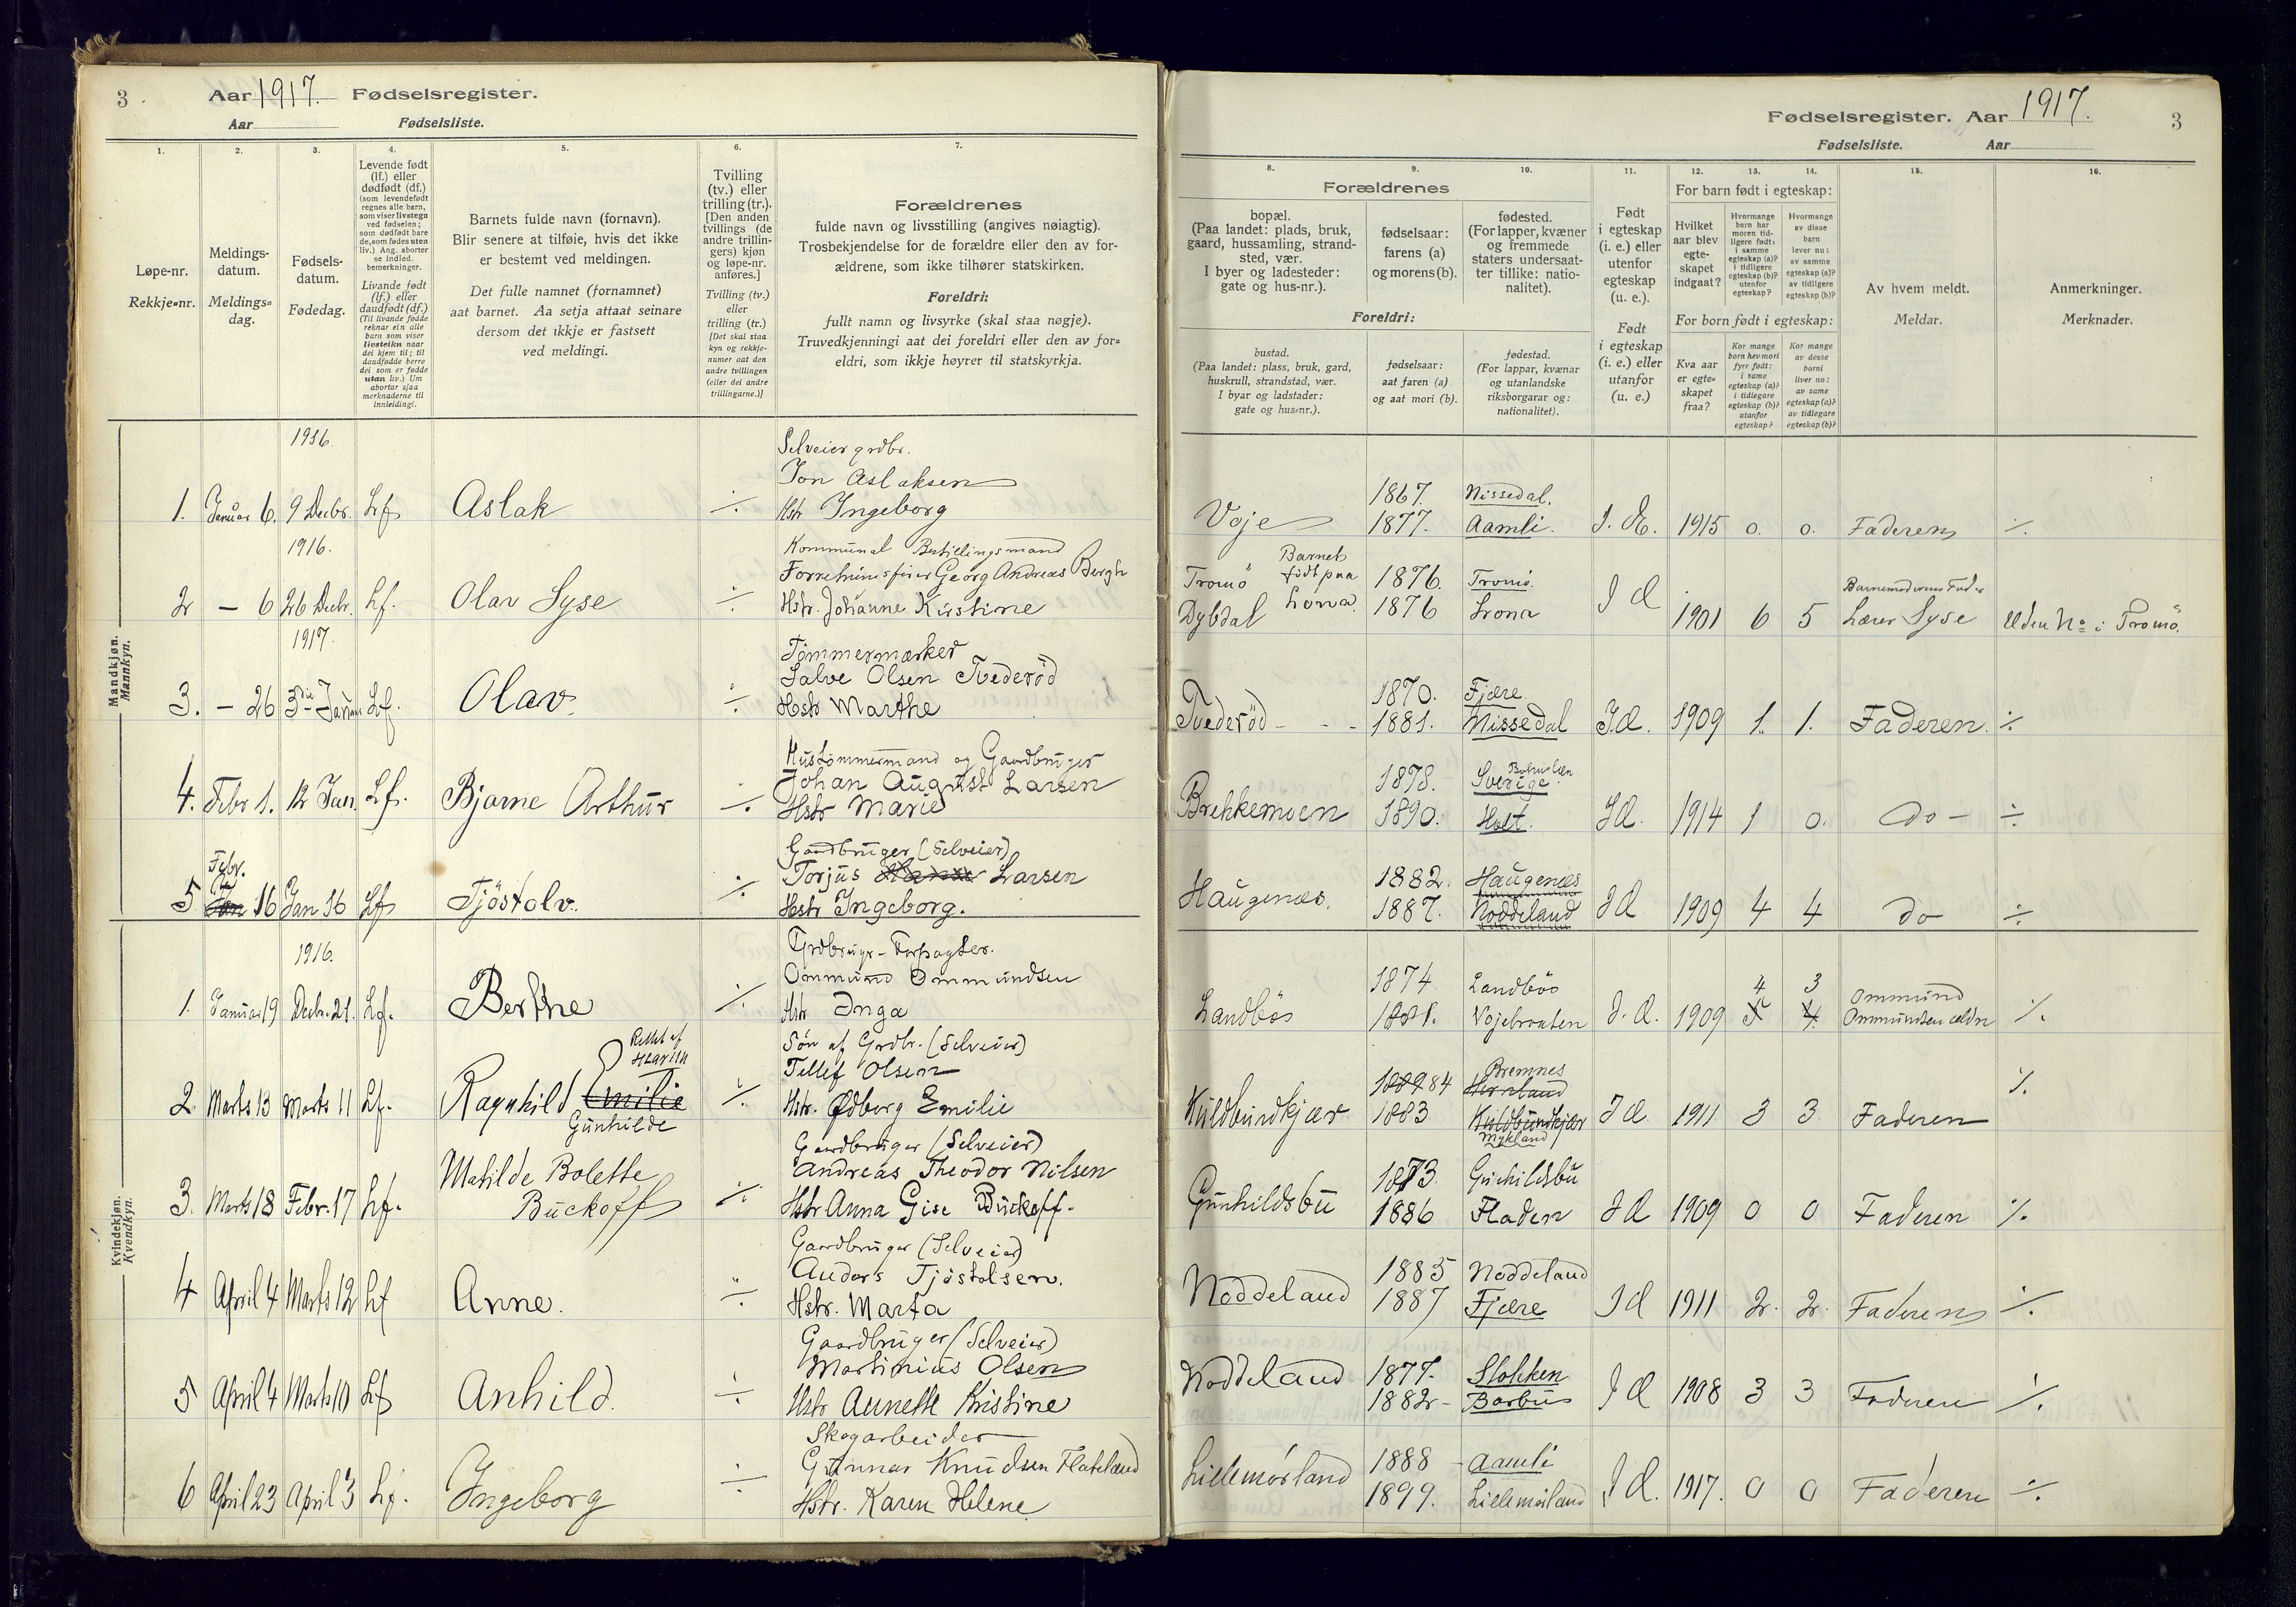 3
Aar 1917. Fødselsregister.
Aar Fødselsliste.
1.
2.
3.
4.
5.
6.
7.
Løpe-nr.
Rekkje-nr.
Meldings-
datum.
Meldings-
dag.
Fødsels-
datum.
Fødedag.
Levende født
(lf.) eller
dødfødt (df.)
(som levendefødt
regnes alle barn,
som viser livstegn
ved fødselen;
som dødfødt bare
de, som fødes uten
liv.) Ang. aborter
se indled.
bemerkninger.
Livande født
(lf.) eller
daudfødt (df.)
(Til livande fødde
reknar ein alle
barn som viser
livsteikn naar
dei kjem til; til
daudfødde berre
dei som er fødde
utan liv.) Um
abortar sjaa
merknaderne til
innleidingi.
Barnets fulde navn (fornavn).
Blir senere at tilføie, hvis det ikke
er bestemt ved meldingen.
Det fulle namnet (fornamnet)
aat barnet. Aa setja attaat seinare
dersom det ikkje er fastsett
ved meldingi.
Tvilling
(tv.) eller
trilling (tr.).
[Den anden
tvillings (de
andre trillin-
gers) kjøn
og løpe-nr.
anføres.]
Tvilling (tv.)
eller
trilling (tr.)
[Det skal staa
kyn og rekkje-
numer aat den
andre tvillingen
(eller dei andre
trillingarne.)]
Forældrenes
fulde navn og livsstilling (angives nøiagtig).
Trosbekjendelse for de forældre eller den av for-
ældrene, som ikke tilhører statskirken.
Foreldri:
fullt namn og livsyrke (skal staa nøgje).
Truvedkjenningi aat dei foreldri eller den av for-
eldri, som ikkje høyrer til statskyrkja.
Mandkjøn.
Mannkyn.
1916.
Selveier grdbr.
Jon Aslaksen
1. Januar 6. 9 Decbr. Lf Aslak ./. Hstr Ingeborg
1916.
Kommunal Bestillingsmand
Georg Andreas Bergh
2 – 6 26 Decbr. Lf. Olav Syse ./. Hstr. Johanne Kirstine
1917.
Tømmermærker
Salve Olsen Tvederöd
3. – 26 3die Januar Lf. Olav. ./. Hstr Marthe
Hustømmermand og Gaardbruger
Johan August Larsen
4. Febr 1. 12 Jan. Lf. Bjarne Arthur ./. Hstr Marie
Gaardbruger (Selveier)
Febr.
Torjus Larsen
5 Jan 16 Jan 16 Lf Tjöstolv. ./. Hstr Ingeborg.
Kvindekjøn.
Kvendkyn.
1916.
Grdbruger - Forpagter.
Ommund Ommundsen
1. Januar 19 Decbr. 21. Lf. Berthe ./. Hstr Inga
Søn af Grdbr. (Selveier)
Tellef Olsen
2. Marts 13 Marts 11 Lf. Ragnhild Emilie ./. Hstr. Ødborg Emilie
Gunhilde
Gaardbruger (Selveier)
Matilde Bolette Andreas Theodor Nilsen
3. Marts 18 Febr. 17 Lf. Buckoff ./. Hstr Anna Gise Buckoff.
Gaardbruger (Selveier)
Anders Tjöstolsen.
4 April 4 Marts 12 Lf Anne. ./. Hstr. Marta
Gaardbruger (Selveier)
Martinius Olsen
5 April 4 Marts 10 Lf Anhild. ./. Hstr Annette Kristine
Skogarbeider
Gunnar Knudsen Flateland
6 April 23 April 3 Lf. Ingeborg ./. Hstr. Karen Helene
Fødselsregister. Aar 1917. 3
Fødselsliste. Aar
8.
9.
10.
11.
12.
13.
14.
15.
16.
Forældrenes
bopæl.
(Paa landet: plads, bruk,
gaard, hussamling, strand-
sted, vær.
I byer og ladesteder:
gate og hus-nr.).
fødselsaar:
farens (a)
og morens (b).
fødested.
(For lapper, kvæner
og fremmede
staters undersaat-
ter tillike: natio-
nalitet).
Foreldri:
bustad.
(Paa landet: plass, bruk, gard,
huskrull, strandstad, vær.
I byar og ladstader:
gate og hus-nr.).
fødselsaar:
aat faren (a)
og aat mori (b).
fødestad.
(For lappar, kvænar
og utanlandske
riksborgarar og:
nationalitet).
Født
i egteskap
(i. e.) eller
utenfor
egteskap
(u. e.).
Født
i egteskap
(i. e.) eller
utanfor
egteskap
(u. e.)
For barn født i egteskap:
Hvilket
aar blev
egte-
skapet
indgaat?
Hvormange
barn har
moren tid-
ligere født:
i samme
egteskap (a)?
i tidligere
egteskap (b)?
utenfor
egteskap?
Hvormange
av disse
barn
lever nu:
av samme
egteskap (a)?
av tidligere
egteskap (b)?
For born født i egteskap:
Kva aar
er egte-
skapet
fraa?
Kor mange
born hev mori
fyrr født:
i same
egteskap (a)?
i tidlegare
egteskap (b)?
utanfor
egteskap?
Kor mange
av desse
borni
liver no:
av same
egteskap (a)?
av tidlegare
egteskap (b)?
Av hvem meldt.
Meldar.
Anmerkninger.
Merknader.
1867. Nissedal.
Voje 1877. Aamli. I. E. 1915 0. 0. Faderen ./.
Barnet
Tromö født paa 1876. Tromö. Barnemoderens Fader
Dybdal Lona. 1876 Lona I E 1901 6 5 Lærer Syse Uden No i Tromö.
1870. Fjære
Tvederöd - - - 1881. Nissedal I E. 1909 1. 1. Faderen. ./.
1878. Sverige
Brekkemoen 1890. Holt. I E. 1914 1 0. do – ./.
1882. Haugenæs
Haugenæs. 1887. Noddeland I E 1909 4 4 do ./.
1874 Landbös 4 3 Ommund
Landbös 1881. Vojebraaten I. E. 1909 5 4. Ommundsen ældre ./.
84 Bremnes ./.
Kuldbundkjær 1883 Kuldbundkjær I E 1911 3 3. Faderen
Mykland
1873. Gunhildsbu
Gunhildsbu 1886 Fladen I E 1909 0 0 Faderen ./.
1885 Noddeland
Noddeland 1887 Fjære I E 1911 2. 2. Faderen ./.
1877. Stokken
Noddeland 1882 - Barbu I E 1908 3 3 Faderen ./.
1888 - Aamli
Lillemörland 1899. Lillemörland I E. 1917. 0 0 Faderen ./.